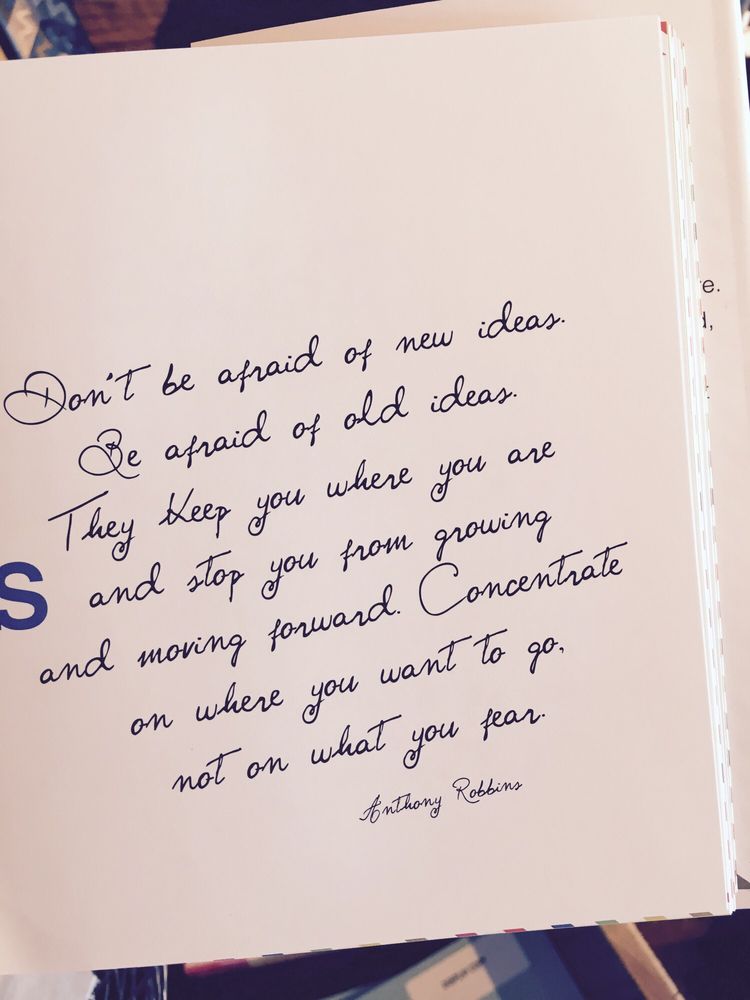 Don't be afraid of new ideas.
Be afraid of old ideas.
They keep you where you are
and stop you from growing
and moving forward. Concentrate
on where you want to go,
not on what you fear.
Anthony Robbins
S
e.